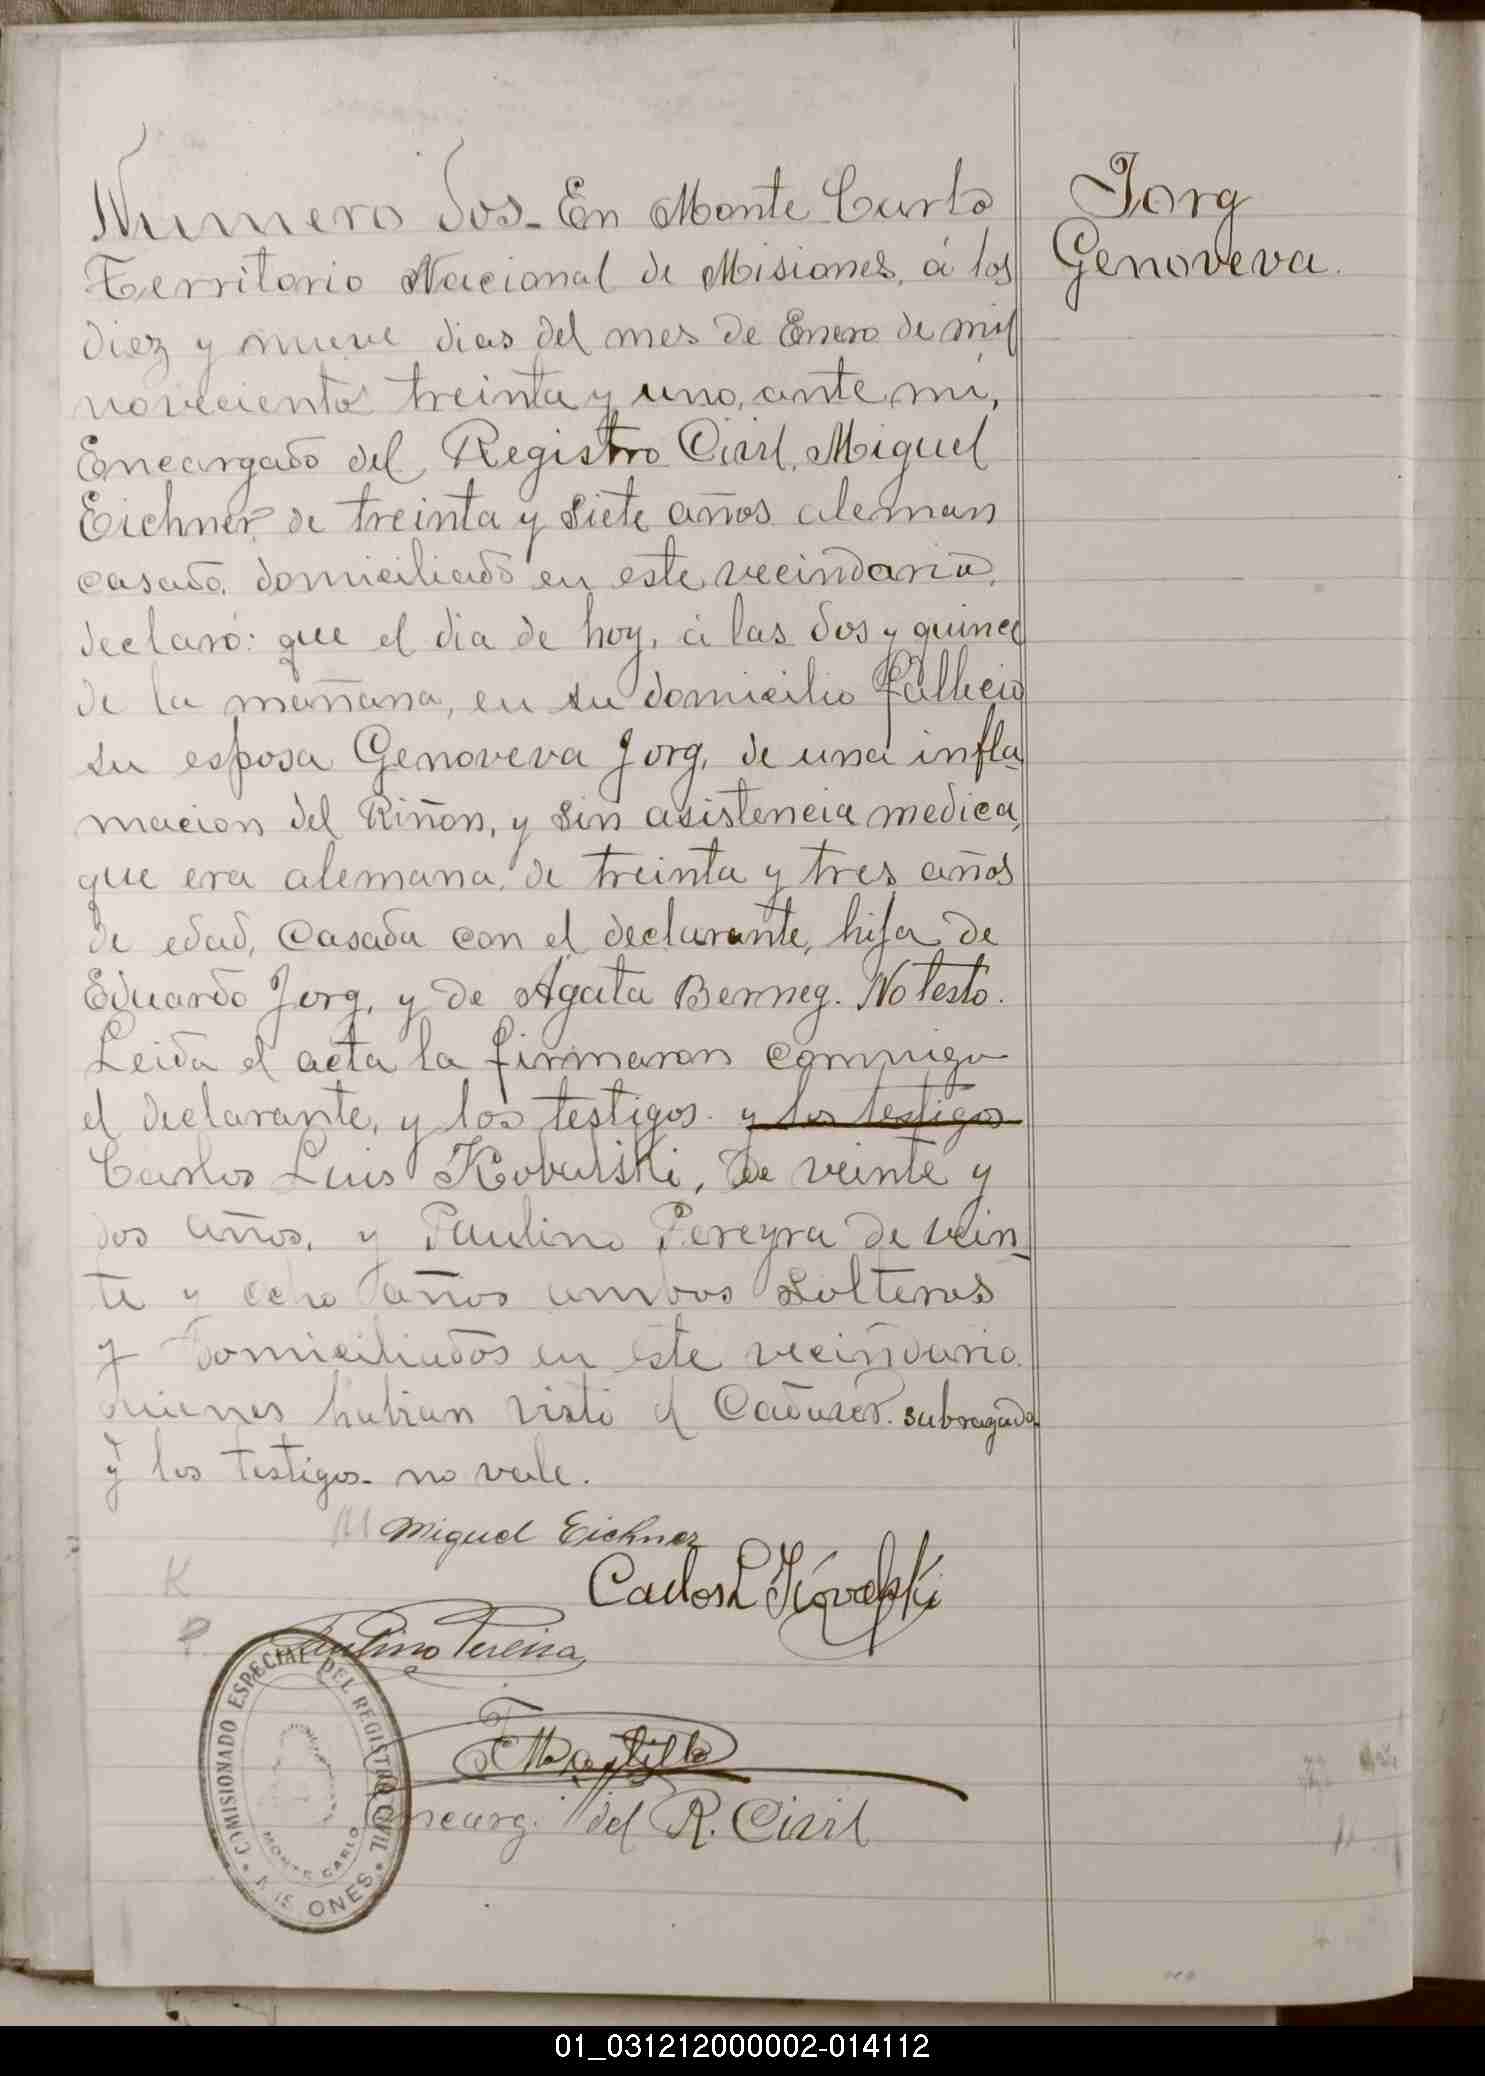 Numero Dos_ En Monte Carlo
Territorio Nacional de Misiones, á los
diez y nueve dias del mes de Enero de mil
novecientos treinta y uno, ante mi,
Encargado del Registro Civil, Miguel
Eichner de treinta y siete años aleman
casado, domiciliado en este vecindario,
declaró: que el dia de hoy, á las dos y quince
de la mañana, en su domicilio fallecio
su esposa Genoveva Jorg, de una infla
macion del Riñon, y sin asistencia medica,
que era alemana, de treinta y tres años
de edad, Casada con el declarante, hija de
Eduardo Jorg, y de Agata Berneg. No testo.
Leida el acta la firmaron conmigo
el declarante, y los testigos. y los testigos
Carlos Luis Kovalski, de veinte y
dos años, y Paulino Pereyra de vein_
te y ocho años ambos solteros
y domiciliados en este vecindario
quienes habian visto el Cadaver. subragado
y los testigos_ no vale.
Jorg
Genoveva.
Miguel Eichner
Carlos L Kovalski
K
P.
Paulino Pereira
Encarg. del R. Civil
COMISIONADO ESPECIAL DEL REGISTRO CIVIL
MONTE CARLO
MISIONES
01_031212000002-014112